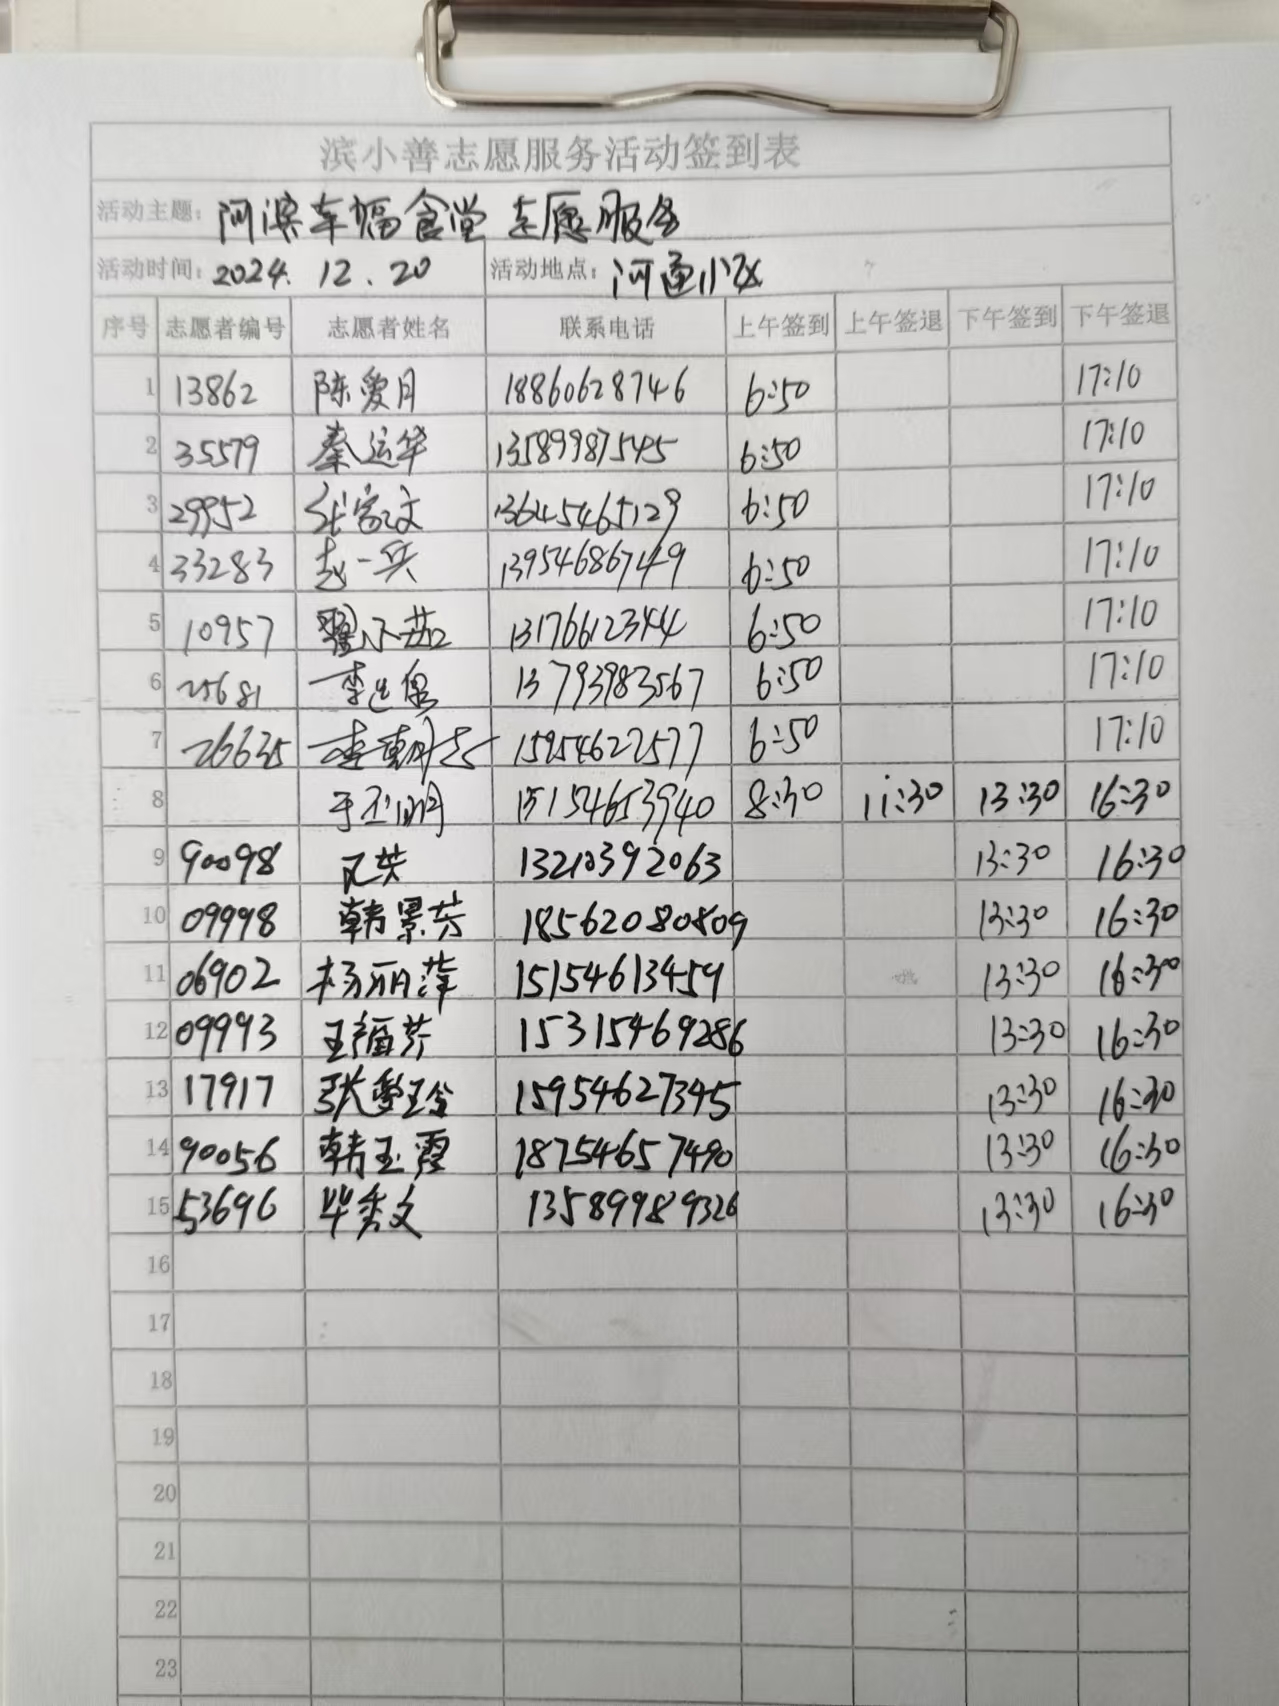 滨小善志愿服务活动签到表
活动主题: 阿滨幸福食堂 志愿服务
活动时间: 2024. 12. 20 活动地点: 河通小区
序号 志愿者编号 志愿者姓名 联系电话 上午签到 上午签退 下午签到 下午签退
1 13862 陈爱月 18860628746 6:50 17:10
2 35579 秦运华 13589987545 6:50 17:10
3 29952 张家文 13645465129 6:50 17:10
4 33283 赵一兵 13954686749 6:50 17:10
5 10957 翟小茹 13176612344 6:50 17:10
6 25681 李 13793983567 6:50 17:10
7 26635 李朝 15954622577 6:50 17:10
8 于 明 15154653940 8:30 11:30 13:30 16:30
9 90098 英 13210392063 13:30 16:30
10 09998 韩景芬 18562080809 13:30 16:30
11 06902 杨丽萍 15154613459 13:30 16:30
12 09993 王福芹 15315469286 13:30 16:30
13 17917 张爱玲 15954627345 13:30 16:30
14 90056 韩玉霞 18754657490 13:30 16:30
15 53696 毕秀文 13589989326 13:30 16:30
16
17
18
19
20
21
22
23